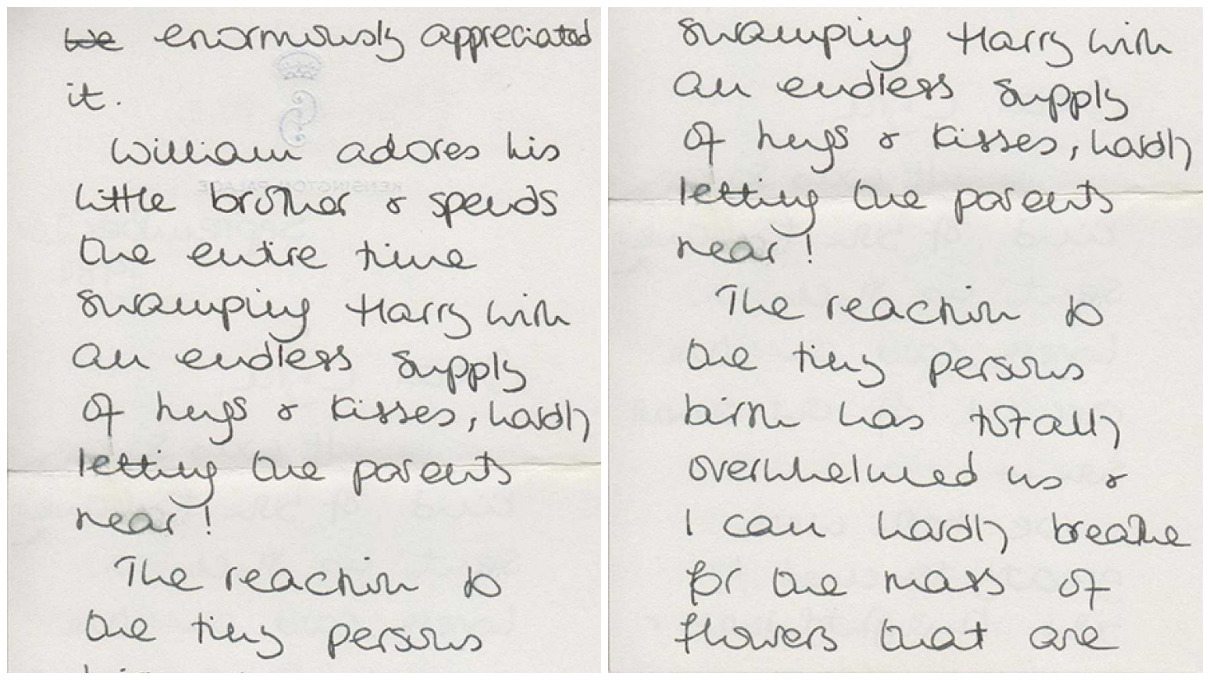 we enormously appreciated
it.
William adores his
little brother & spends
the entire time
swamping Harry with
an endless supply
of hugs & kisses, hardly
letting the parents
near!
The reaction to
the tiny persons
swamping Harry with
an endless supply
of hugs & kisses, hardly
letting the parents
near!
The reaction to
the tiny persons
birth has totally
overwhelmed us &
I can hardly breathe
for the mass of
flowers that are
KENSINGTON PALACE